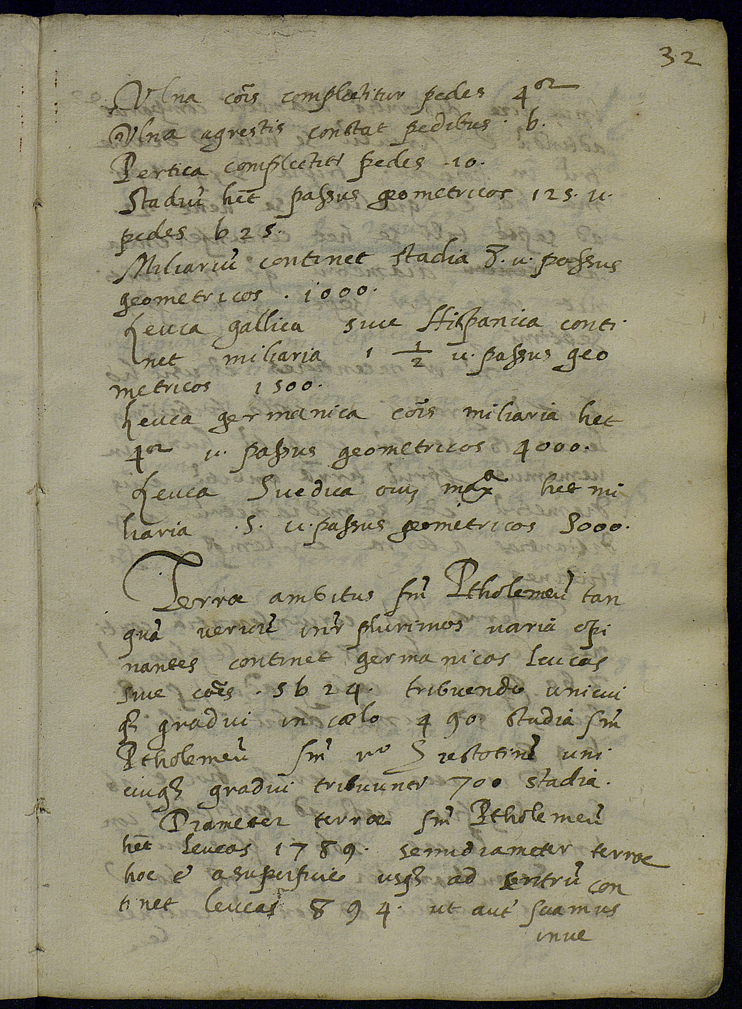 32
Vlna cōis complectitur pedes 4or
Vlna agrestis constat pedibus. 6.
Pertica complectitr pedes .10.
Stadiū het passus geometricos 125. u.
pedes 625.
Miliariū continet stadia 8. u. passus
geometricos . 1000.
Leuca gallica siue Hispanica conti
net miliaria 1 1/2 u. passus geo
metricos 1500.
Leuca germanica cōis miliaria het
4or u. passus geometricos 4000.
Leuca Suedica maxa het mi
liaria .5. u. passus geometricos 5000.
Terræ ambitus sm Ptholemeū tan
quā veriū intr plurimos varia opi
nantes continet germanicas leucas
siue cōes . 5624. tribuendo unicui
q3 gradui in cœlo 490 stadia sm
Ptholemeū sm vo uni
cuiq3 gradui tribuuntr 700 stadia.
Diameter terræ sm Ptholemeū
het leucas 1789. semidiameter terræ
hoc ē a superficie usq3 ad centrū con
tinet leucas 894. ut aut sciamus
inue